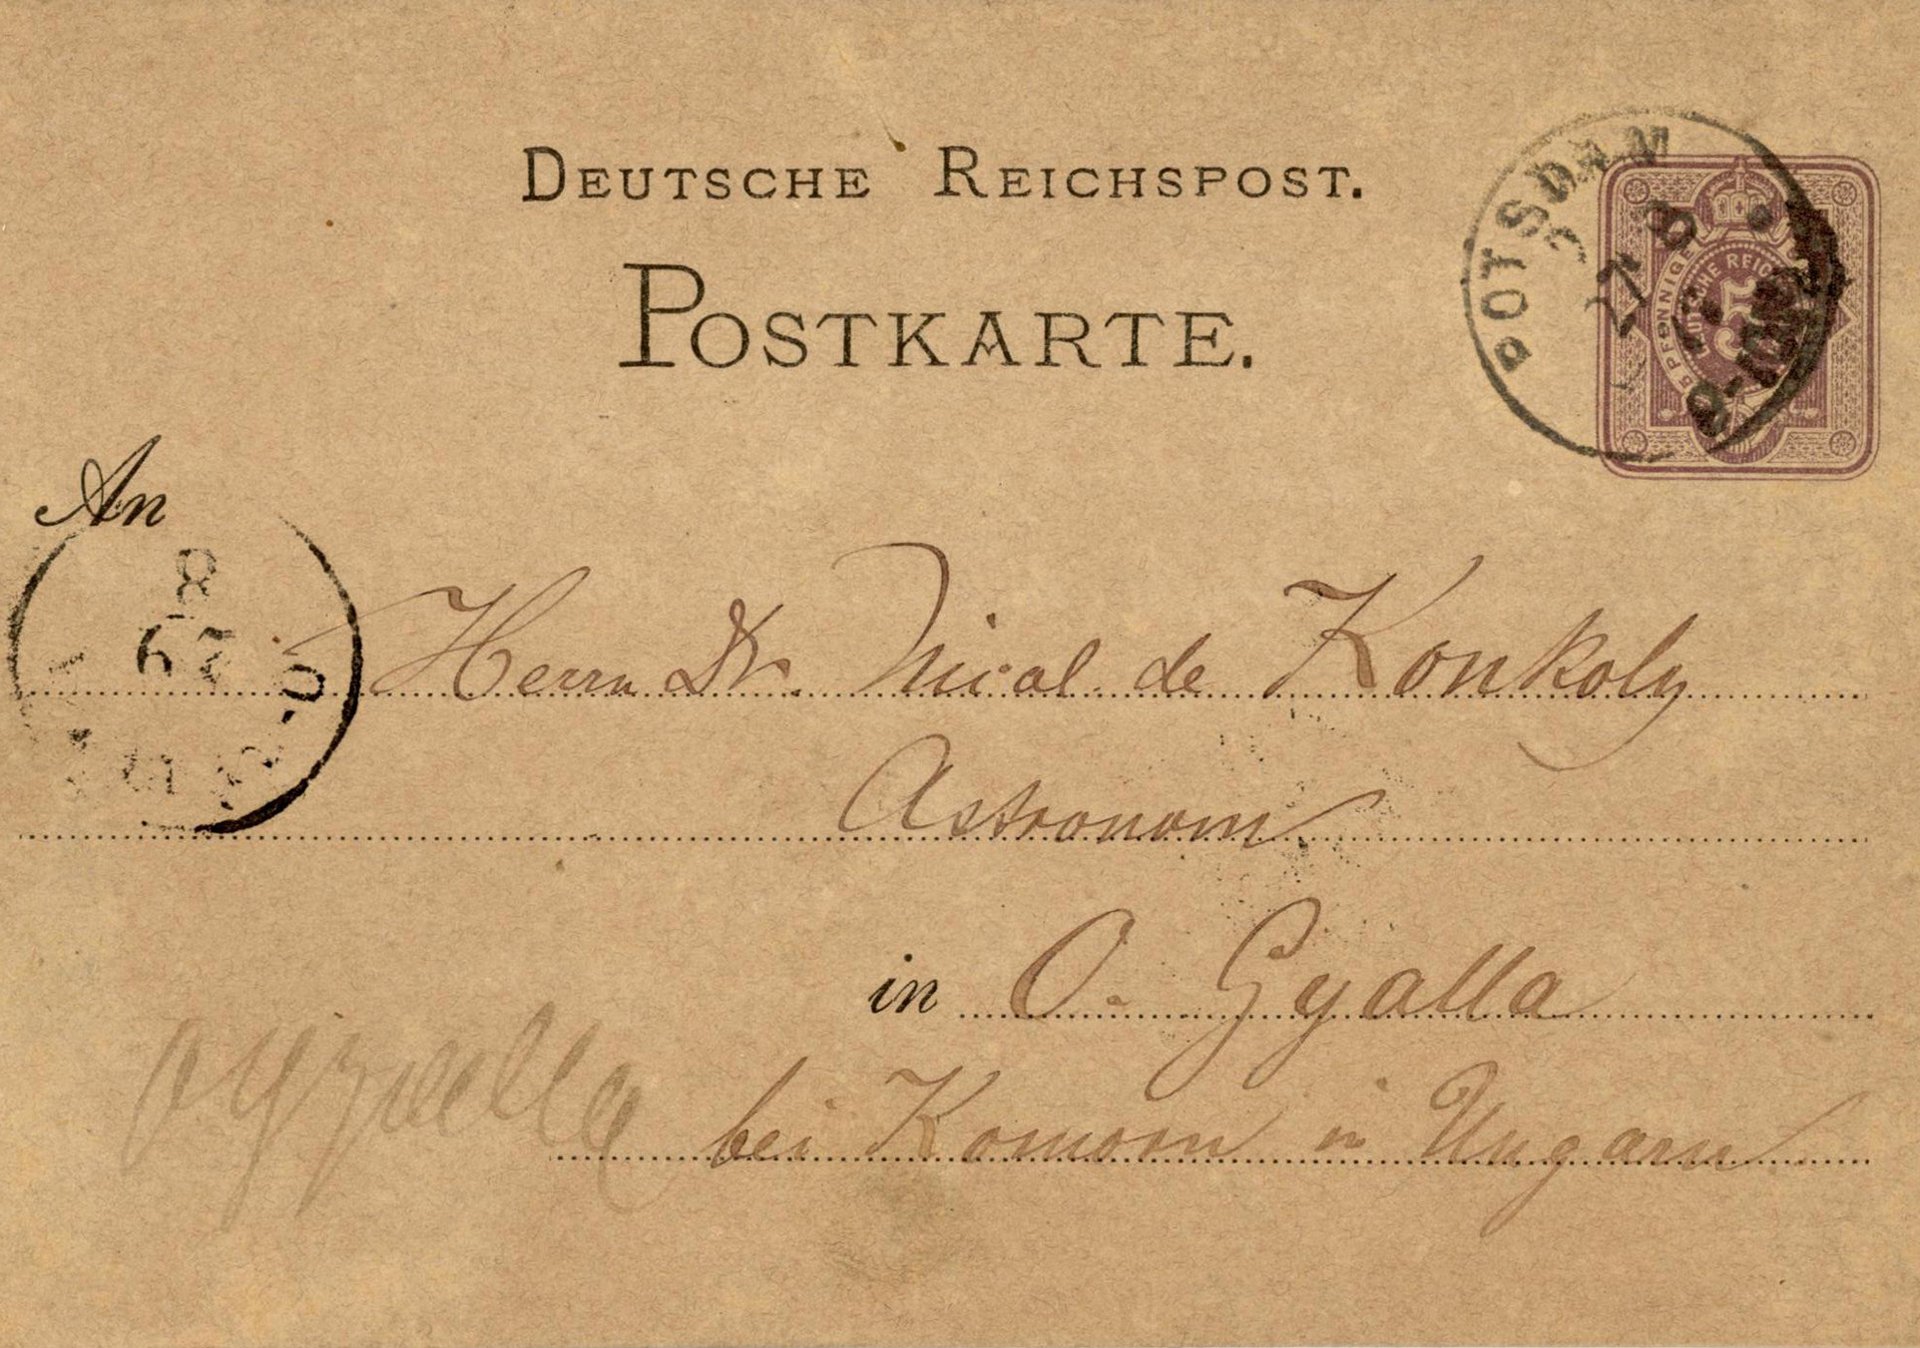 DEUTSCHE REICHSPOST.
POSTKARTE.
POTSDAM
27 8
5 PFENNIGE
DEUTSCHE REICHSPOST
5
An
8
29
Herrn Dr. Nicol. de Konkoly
Astronom
in O. Gyalla
bei Komorn in Ungarn